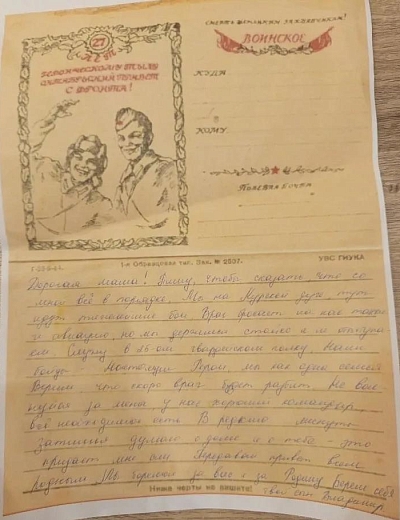 СМЕРТЬ НЕМЕЦКИМ ЗАХВАТЧИКАМ!
ВОИНСКОЕ
27
ЛЕТ
ГЕРОИЧЕСКОМУ ТЫЛУ
ОКТЯБРЬСКИЙ ПРИВЕТ
С ФРОНТА!
КУДА
КОМУ
ПОЛЕВАЯ ПОЧТА
1-я Образцовая тип. Зак. № 2537.
УВС ГИУКА
Дорогая мама! Пишу, чтобы сказать что со
мной всё в порядке. Мы на Курской дуге, тут
идут бои. Враг на нас танки
и авиацию, но мы держимся стойко и не отступа
ем. Служу в 25-ом гвардейском полку. Наши
бойцы - Настоящие Герои, мы как одна семья
Верим что скоро враг будет разбит. Не вол
нуйся за меня у нас хороший командир
всё необходимое есть В редкие минуты
затишья думаю о доме и о тебе - это
придаёт мне сил Передавай привет всем
родным Мы боремся за вас и за Родину Береги себя
Ниже черты не пишите!
твой сын Владимир